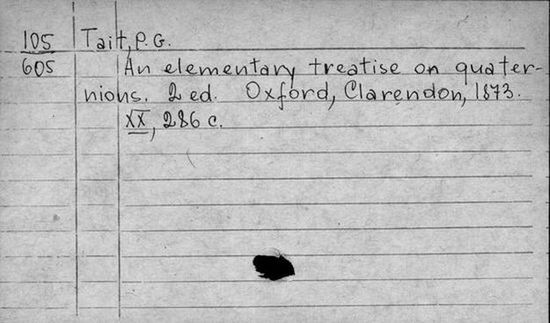 105 Tait, P.G.
605 An elementary treatise on quater-
nions. 2 ed. Oxford, Clarendon, 1873.
XX, 286 c.